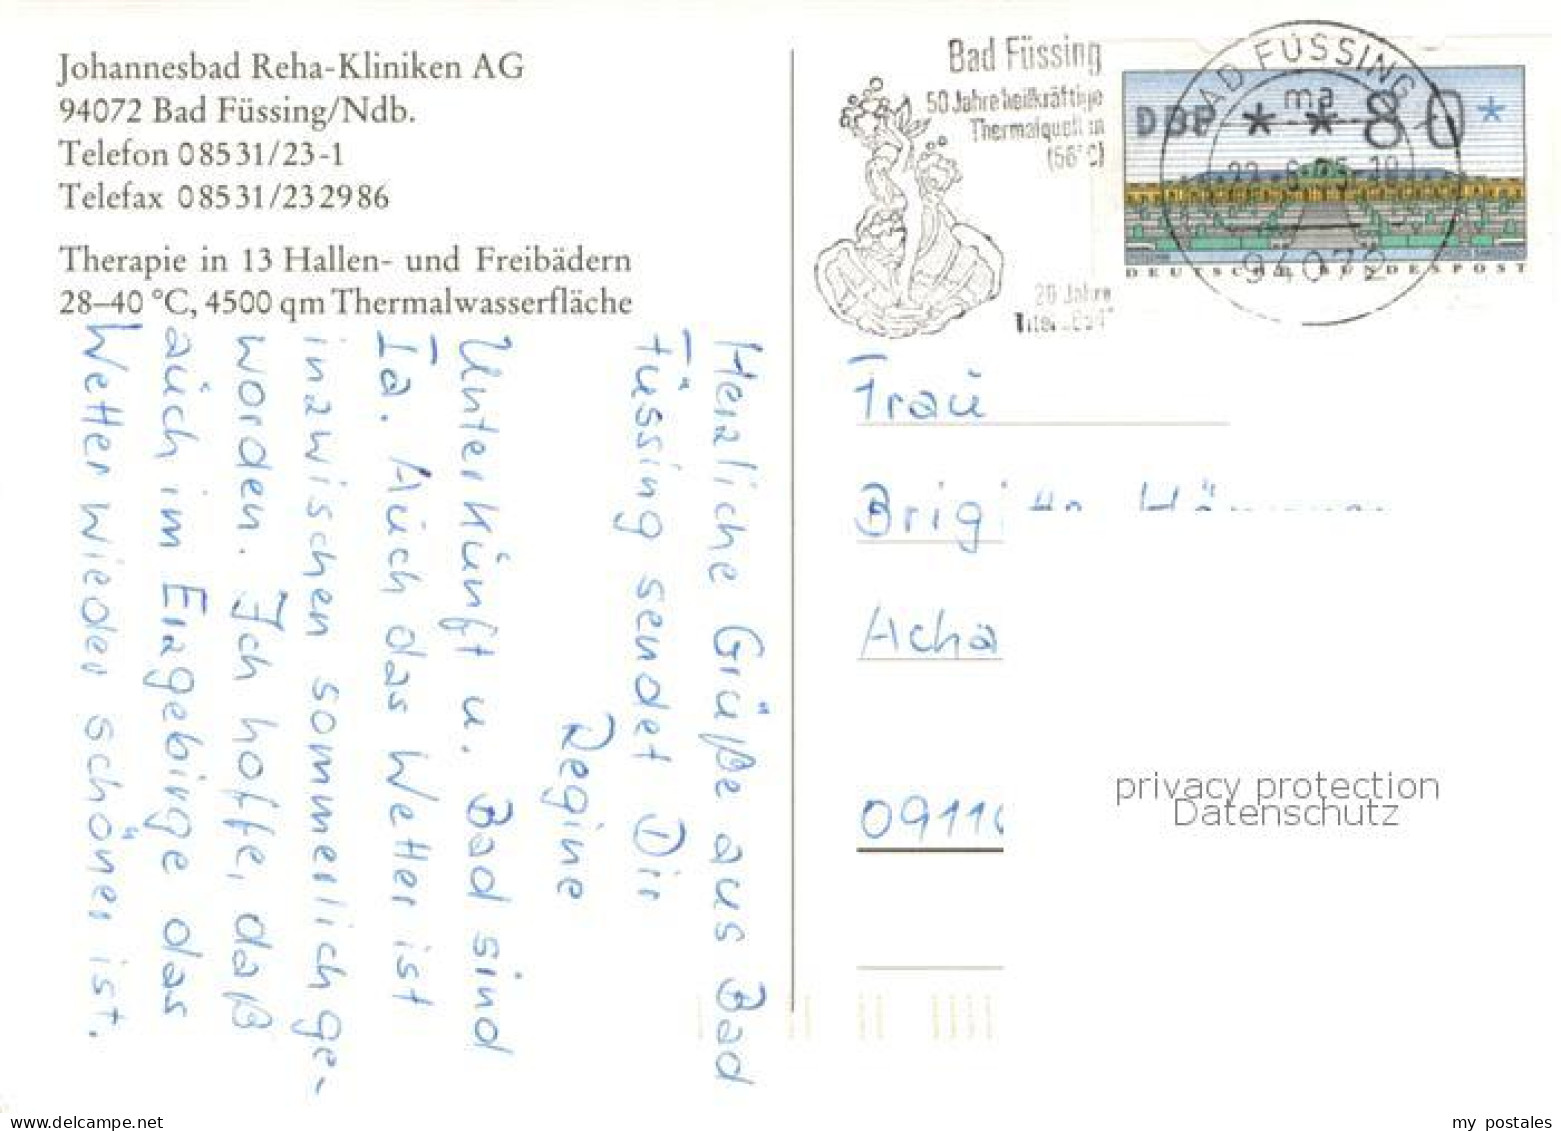 Johannesbad Reha-Kliniken AG
94072 Bad Füssing/Ndb.
Telefon 08531/23-1
Telefax 08531/232986
Therapie in 13 Hallen- und Freibädern
28–40 °C, 4500 qm Thermalwasserfläche
Herzliche Grüße aus Bad
Füssing sendet Dir
Regine
Unterkunft u. Bad sind
Ia. Auch das Wetter ist
inzwischen sommerlich ge-
worden. Ich hoffe, daß
auch im Erzgebirge das
Wetter wieder schöner ist.
Bad Füssing
50 Jahre heilkräftige
Thermalquelle in
(56°C)
20 Jahre
BAD FÜSSING
ma
94072
DBP **80*
DEUTSCHE BUNDESPOST
Frau
Brigitte
0911
privacy protection
Datenschutz
www.delcampe.net
my_postales